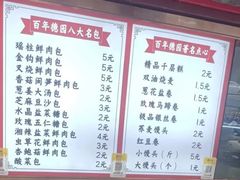 百年德园八大名包
瑶柱鲜肉包 5元
金钩鲜肉包 5元
叉烧鲜肉包 3元
香菇闲笋鲜肉包 3元
葱姜大汤包 2元
芝麻豆沙包 3元
水晶盐菜糖包 2元
玫瑰五仁糖包 2元
湘辣盐菜鲜肉包 3元
虫草花鲜肉包 3元
香鲍菇鲜肉包 3元
酸菜包 2元
百年德园著名点心
精品千层糕 2元
双油烧麦 1.5元
葱花盐卷 1元
玫瑰马蹄卷 1元
极品银丝卷 2元
荞麦馒头 2元
红豆卷 2元
小馒头（斤） 5元
大馒头（个） 1元